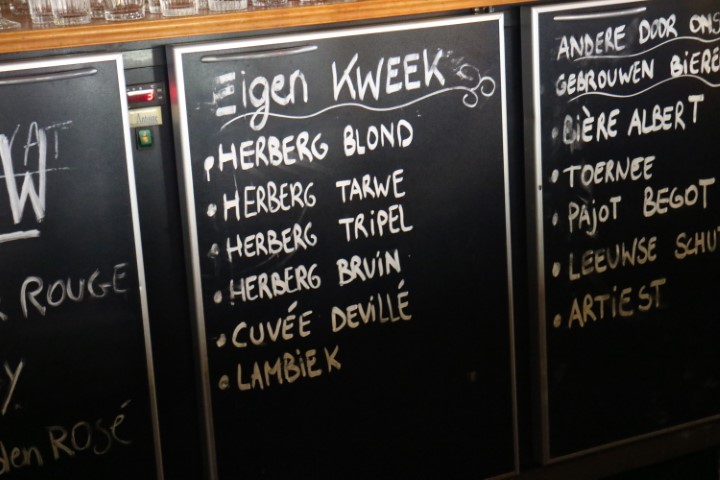 ROUGE
Rosé
Eigen KWEEK
HERBERG BLOND
HERBERG TARWE
HERBERG TRIPEL
HERBERG BRUIN
CUVÉE DEVILLÉ
LAMBIEK
ANDERE DOOR
GEBROUWEN
BIÈRE ALBERT
TOERNEE
PAJOT BEGOT
LEEUWSE
ARTIEST